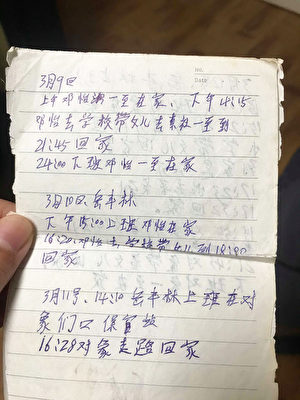 No.
Date
3月9日
上午邓怡 一至在家、下午4:15
邓怡去学校带女儿去 一至到
21:45回家
24:00下班邓怡一至在家
3月10日、岳丰林
下午15:00上班邓怡在家
16:20邓怡去学校带女儿到18:20
回家
3月11号、14:10岳丰林上班在对
象们口保育故
16:28对象走路回家